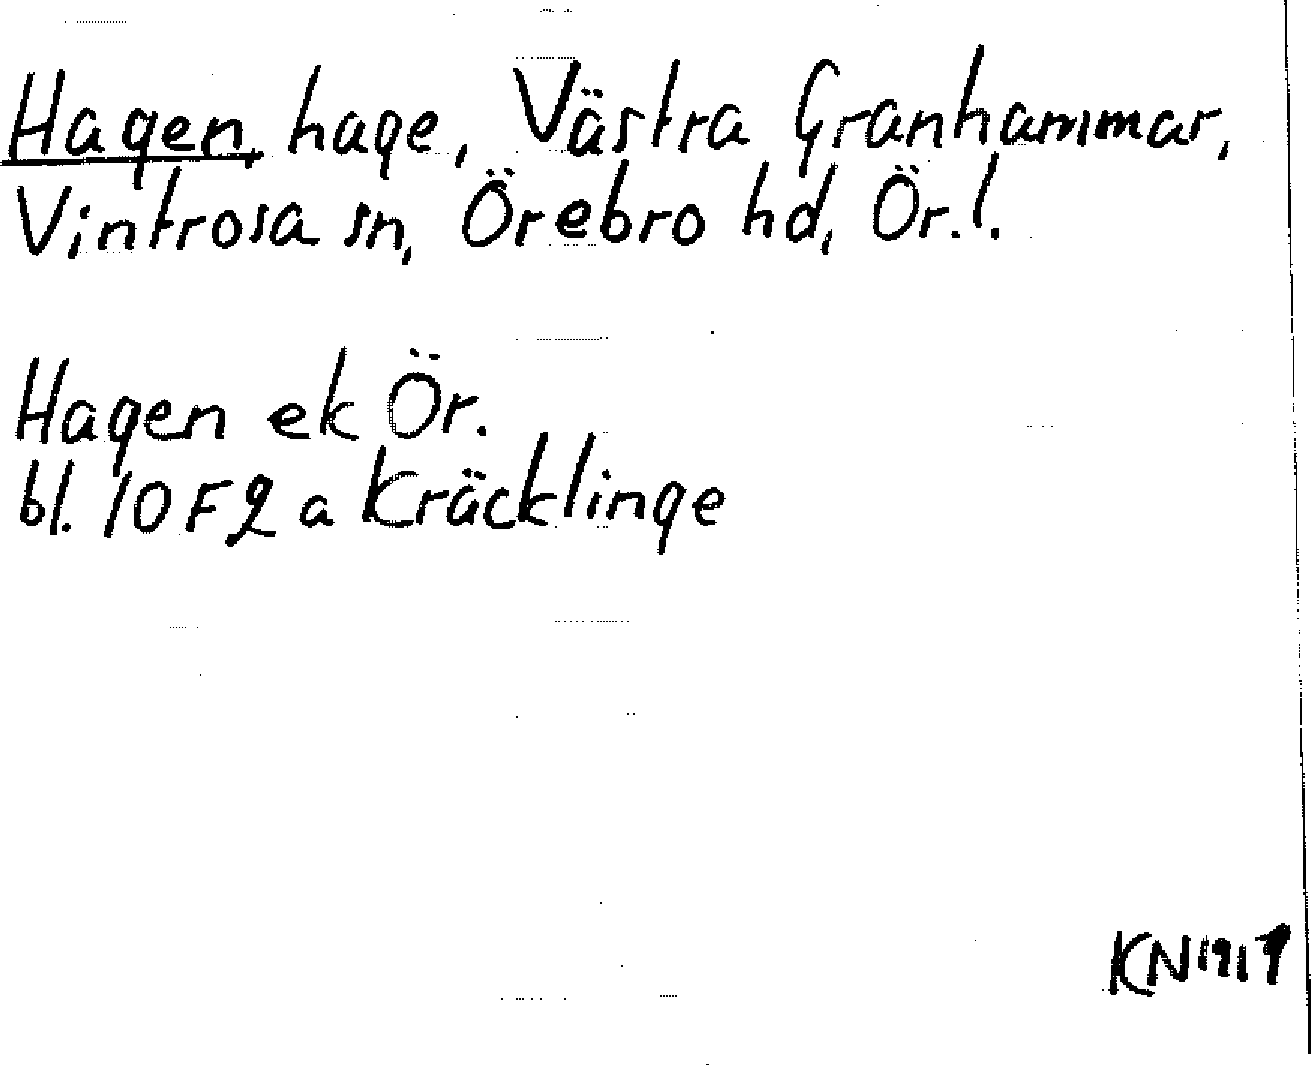 Hagen, hage, Västra Granhammar,
Vintrosa sn, Örebro hd, Ör.l.
Hagen ek Ör.
bl. 10F2a Kräcklinge